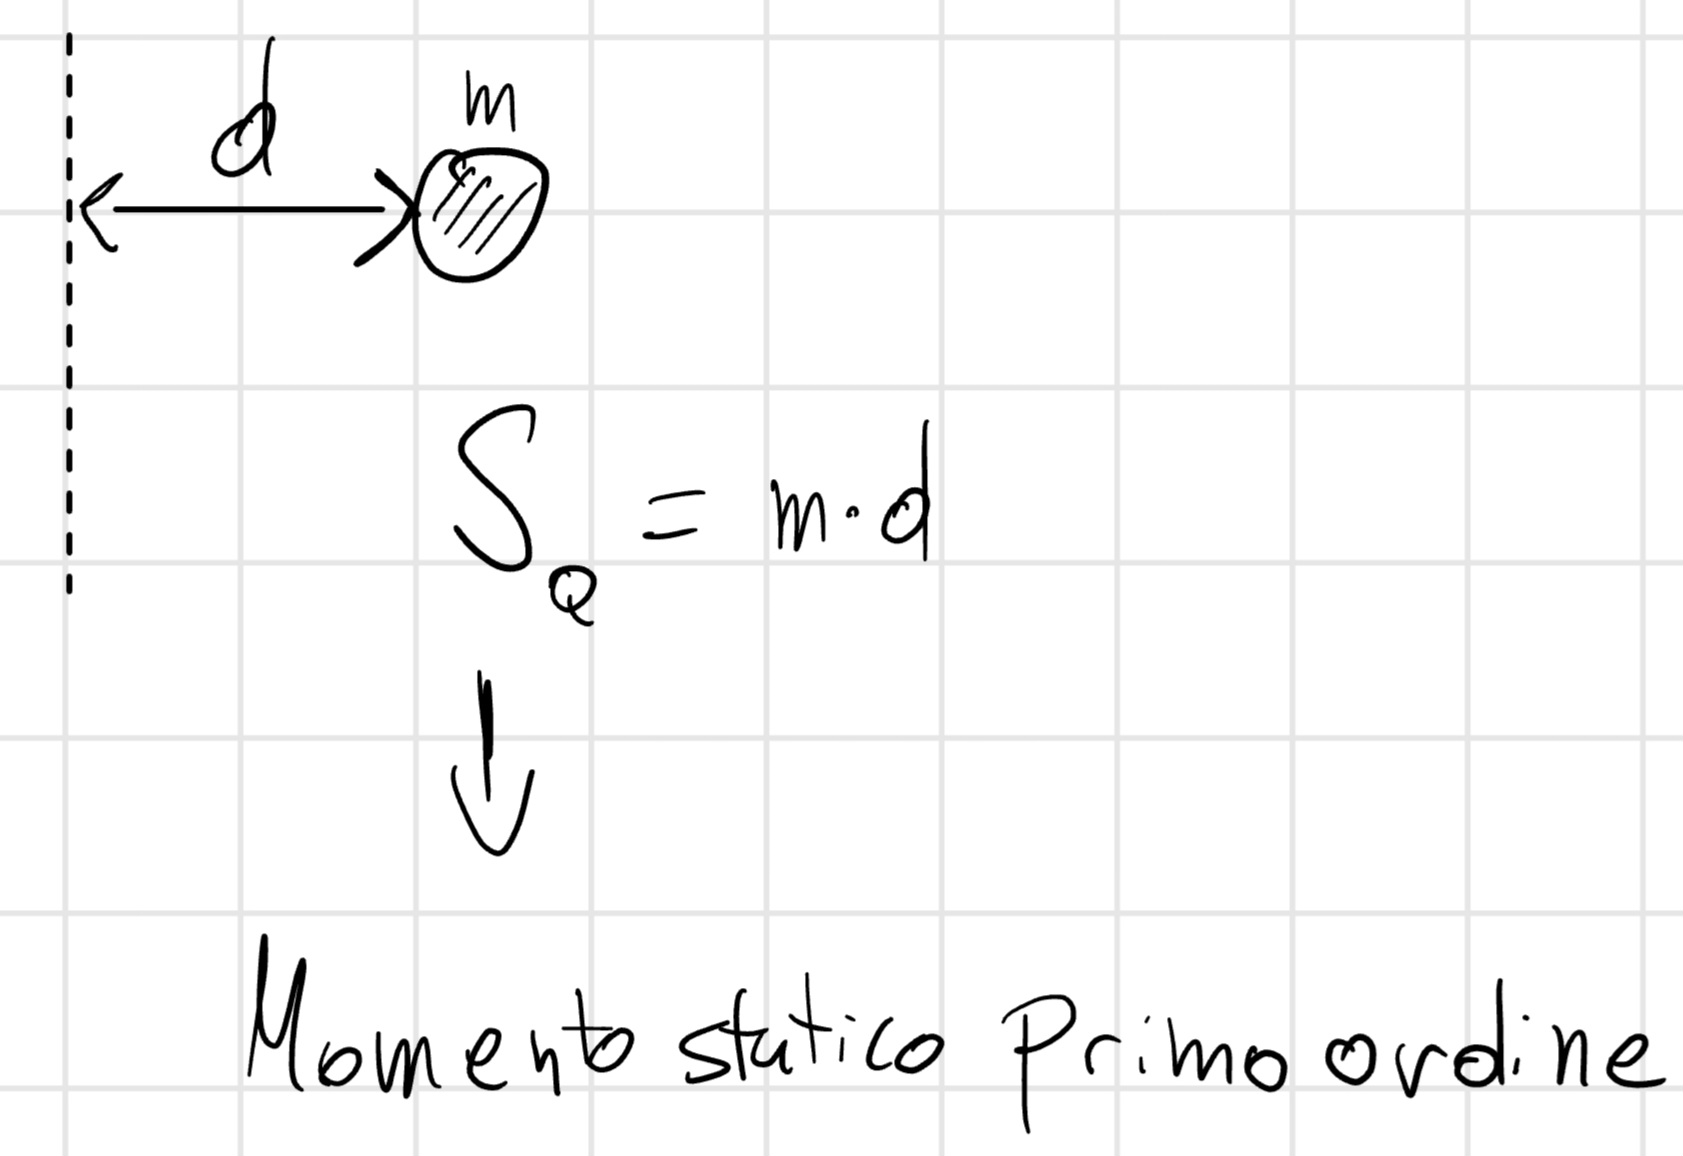 d
m
S_Q = m · d
Momento statico Primo ordine